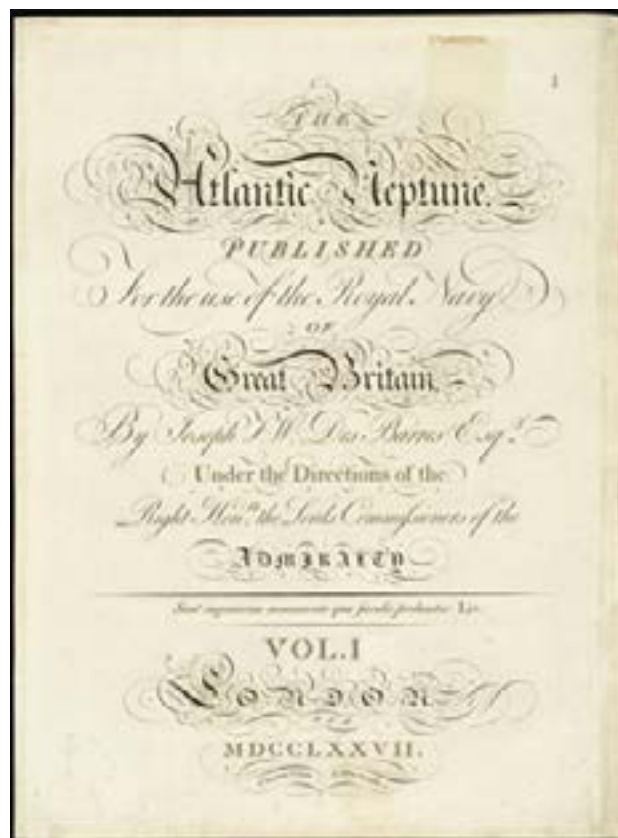 1
THE
Atlantic Neptune.
PUBLISHED
For the use of the Royal Navy
OF
Great Britain
By Joseph F W Des Barres Esqr.
Under the Directions of the
Right Honble. the Lords Commissioners of the
ADMIRALTY
VOL. I
LONDON
MDCCLXXVII.